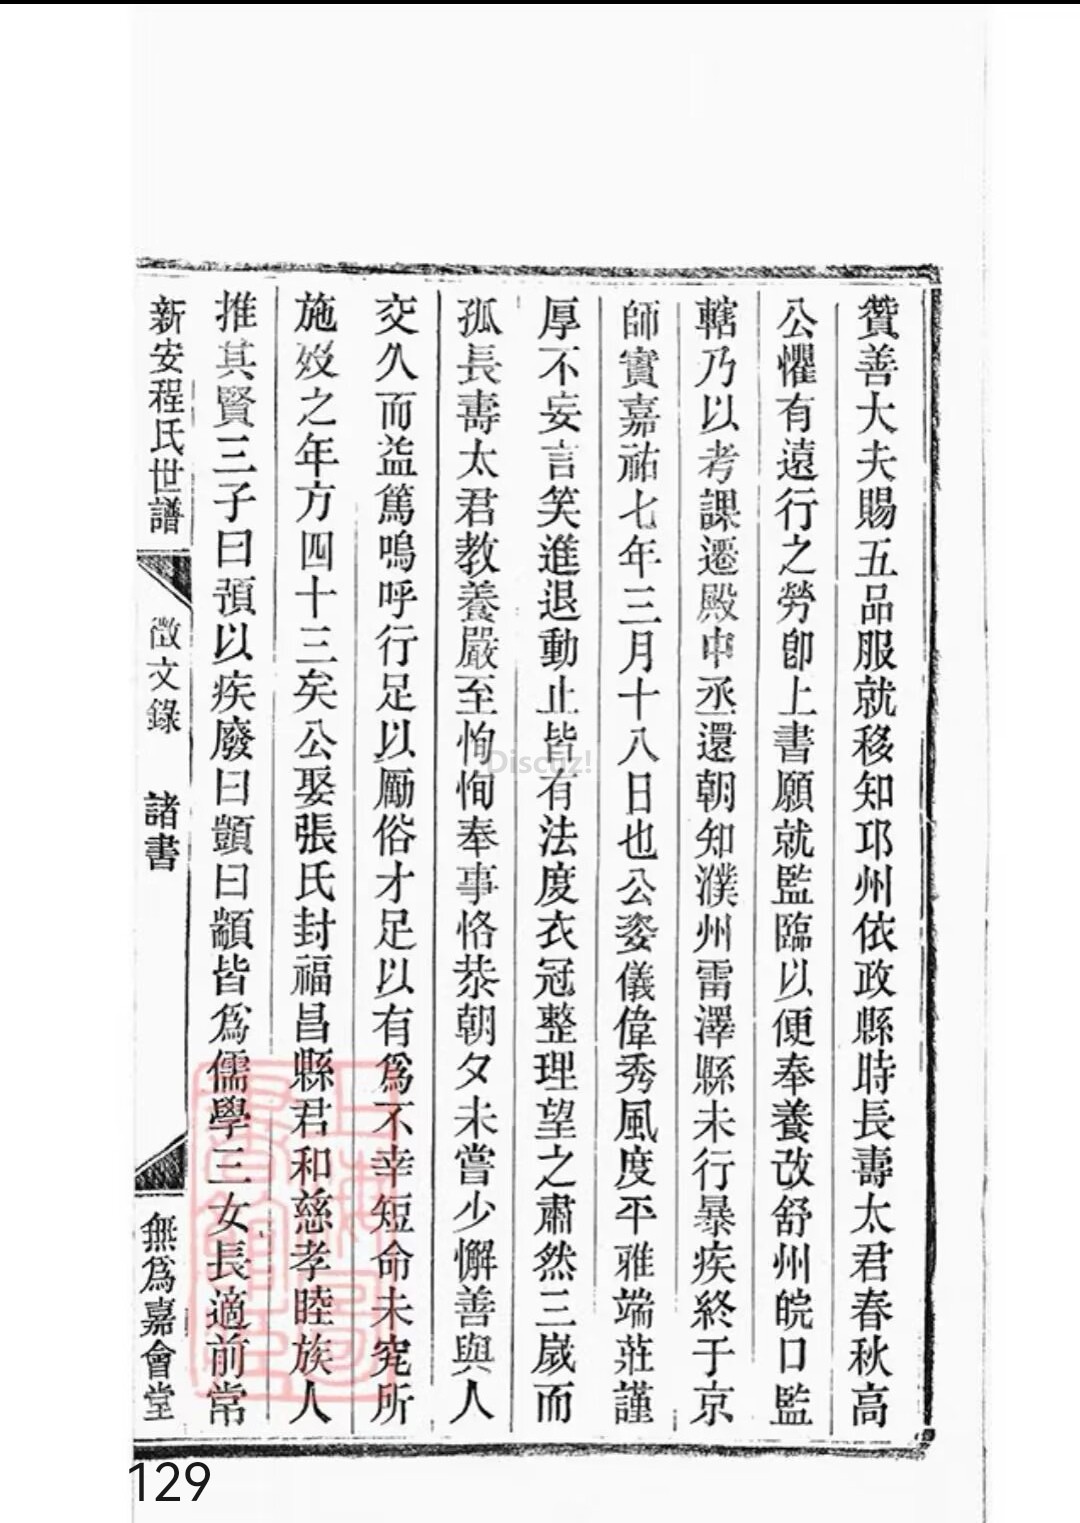 贊善大夫賜五品服就移知邛州依政縣時長壽太君春秋高
公懼有遠行之勞卽上書願就監臨以便奉養改舒州皖口監
轄乃以考課遷殿中丞還朝知濮州雷澤縣未行暴疾終于京
師實嘉祐七年三月十八日也公姿儀偉秀風度平雅端莊謹
厚不妄言笑進退動止皆有法度衣冠整理望之肅然三歲而
孤長壽太君教養嚴至恂恂奉事恪恭朝夕未嘗少懈善與人
交久而益篤嗚呼行足以勵俗才足以有爲不幸短命未究所
施歿之年方四十三矣公娶張氏封福昌縣君和慈孝睦族人
推其賢三子曰頊以疾廢曰顗曰顓皆爲儒學三女長適前常
新安程氏世譜
徵文錄 諸書
無爲嘉會堂
上海圖書館藏
Discuz!
129